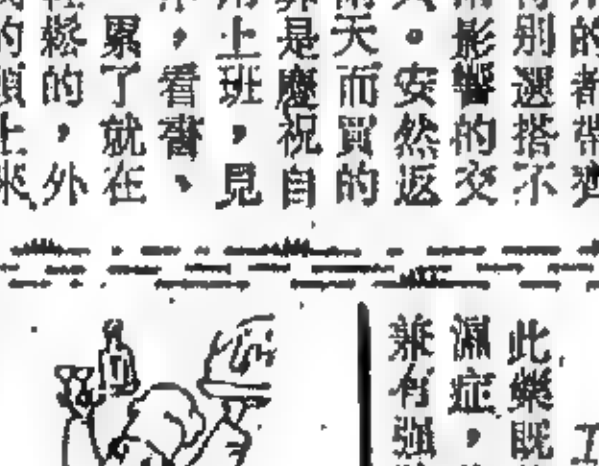 別選搭不
影響的交
。安然返
天而買的
是慶祝自
上班，見
，看書、
累了就在
鬆的，外
此藥既
濕症，
兼有強